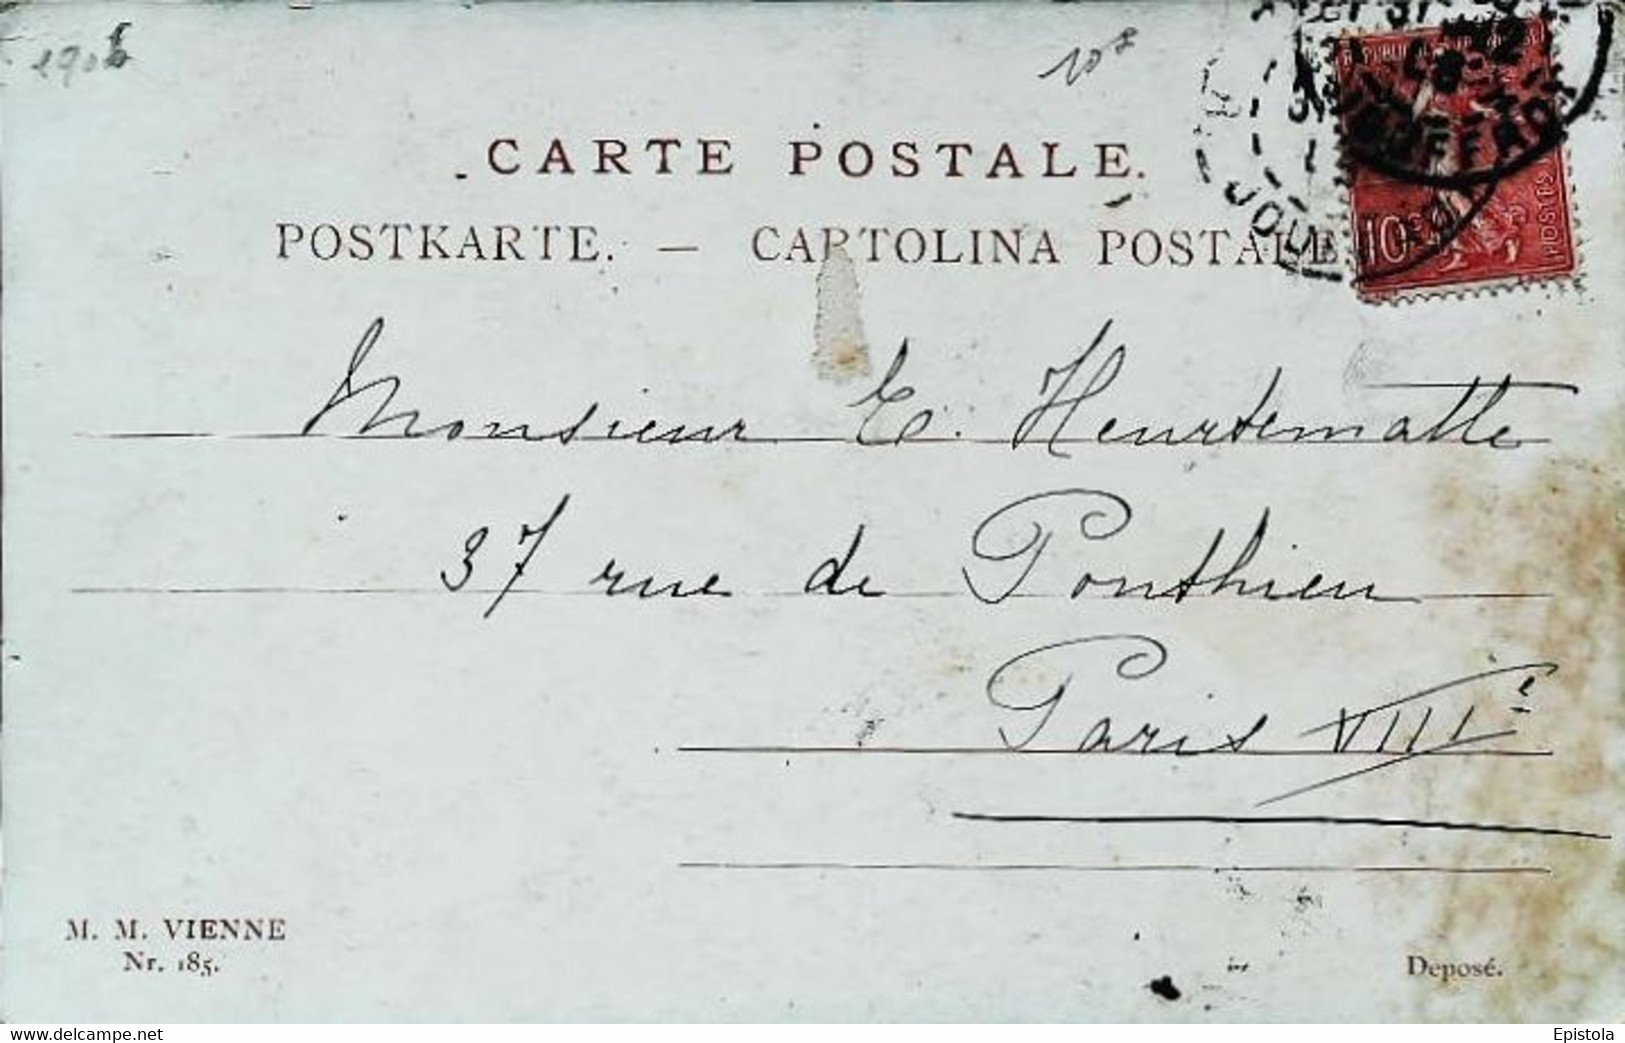 1906
CARTE POSTALE.
POSTKARTE. — CARTOLINA POSTALE
10
POSTES
Monsieur E. Heurtematte
37 rue de Ponthieu
Paris VIIIe
M. M. VIENNE
Nr. 185.
Deposé.
www.delcampe.net
Epistola